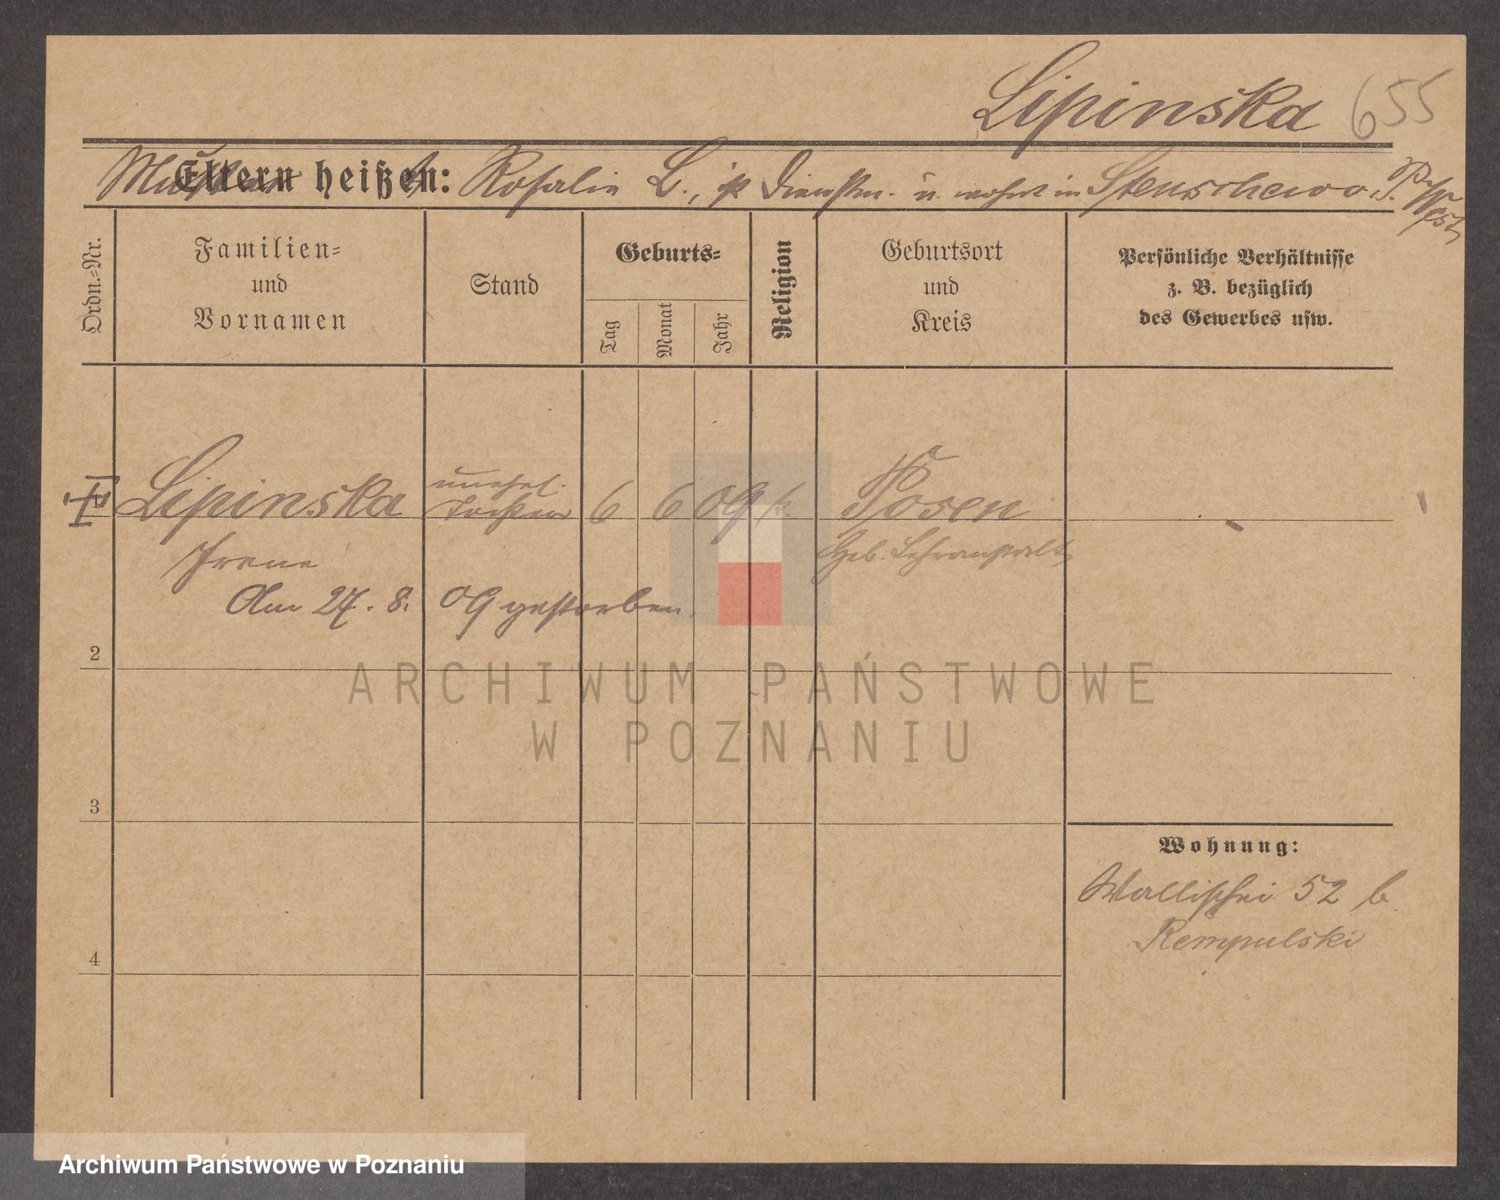 Lipinska 655
Mutter
Eltern heißen: Rosalie L., ist Dienstm. u. wohnt in Stenschewo. P. West
Ordn.-Nr.
Familien-
und
Vornamen
Stand
Geburts-
Tag
Monat
Jahr
Religion
Geburtsort
und
Kreis
Persönliche Verhältnisse
z. B. bezüglich
des Gewerbes usw.
Lipinska unehel. Tochter 6 6 09 k. Posen
Irene Heb. Lehranstalt
Am 27. 8. 09 gestorben.
2
3
4
Wohnung:
Wallischei 52 b
Rempulski
ARCHIWUM PAŃSTWOWE
W POZNANIU
Archiwum Państwowe w Poznaniu